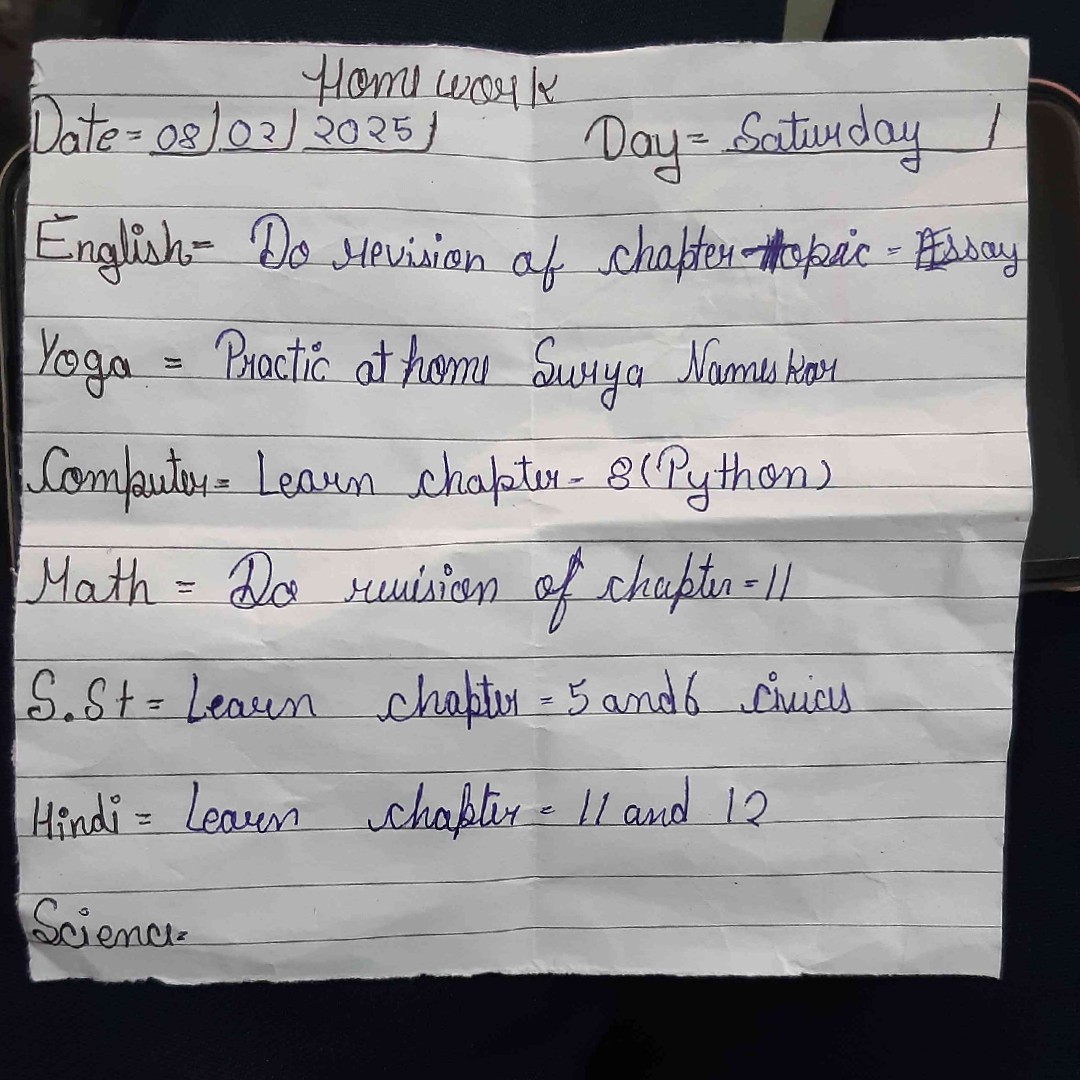 Home work
Date= 08/02/2025/ Day= Saturday /
English= Do revision of chapter-topic = Essay
Yoga = Practic at home Surya Nameskar
Computer= Learn chapter- 8(Python)
Math = Do revision of chapter=11
S.St= Learn chapter = 5 and 6 civics
Hindi = Learn chapter = 11 and 12
Science=